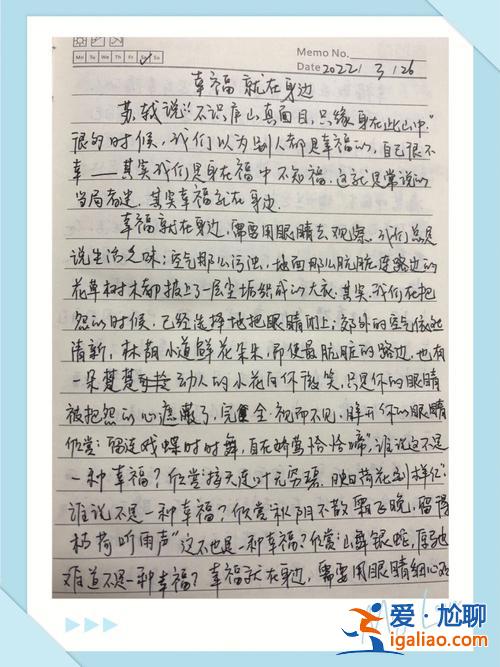 Mo Tu We Th Fr Sa Su
Memo No.
Date 2022 / 3 / 26
幸福就在身边
苏轼说:"不识庐山真面目,只缘身在此山中."
很多时候,我们以为别人都是幸福的,自己很不
幸——其实我们是身在福中不知福.这就是常说的
当局者迷.其实幸福就在身边.
幸福就在身边,需要用眼睛去观察.我们总是
说生活乏味;空气那么污浊,地面那么肮脏连路边的
花草树木都披上了一层尘垢织成的大衣.其实,我们在抱
怨的时候,已经选择地把眼睛闭上;郊外的空气依然
清新,林荫小道鲜花朵朵,即使最肮脏的路边,也有
一朵楚楚动人的小花向你微笑,只是你的眼睛
被抱怨的心蒙蔽了,完全视而不见.睁开你的眼睛
欣赏:"留连戏蝶时时舞,自在娇莺恰恰啼",谁说这不是
一种幸福?欣赏"接天莲叶无穷碧,映日荷花别样红"
谁说不是一种幸福?欣赏"秋阴不散霜飞晚,留得
枯荷听雨声"这不也是一种幸福?欣赏"山舞银蛇,原驰
难道不是一种幸福?幸福就在身边,需要用眼睛细心
爱·尬聊
igaliao.com